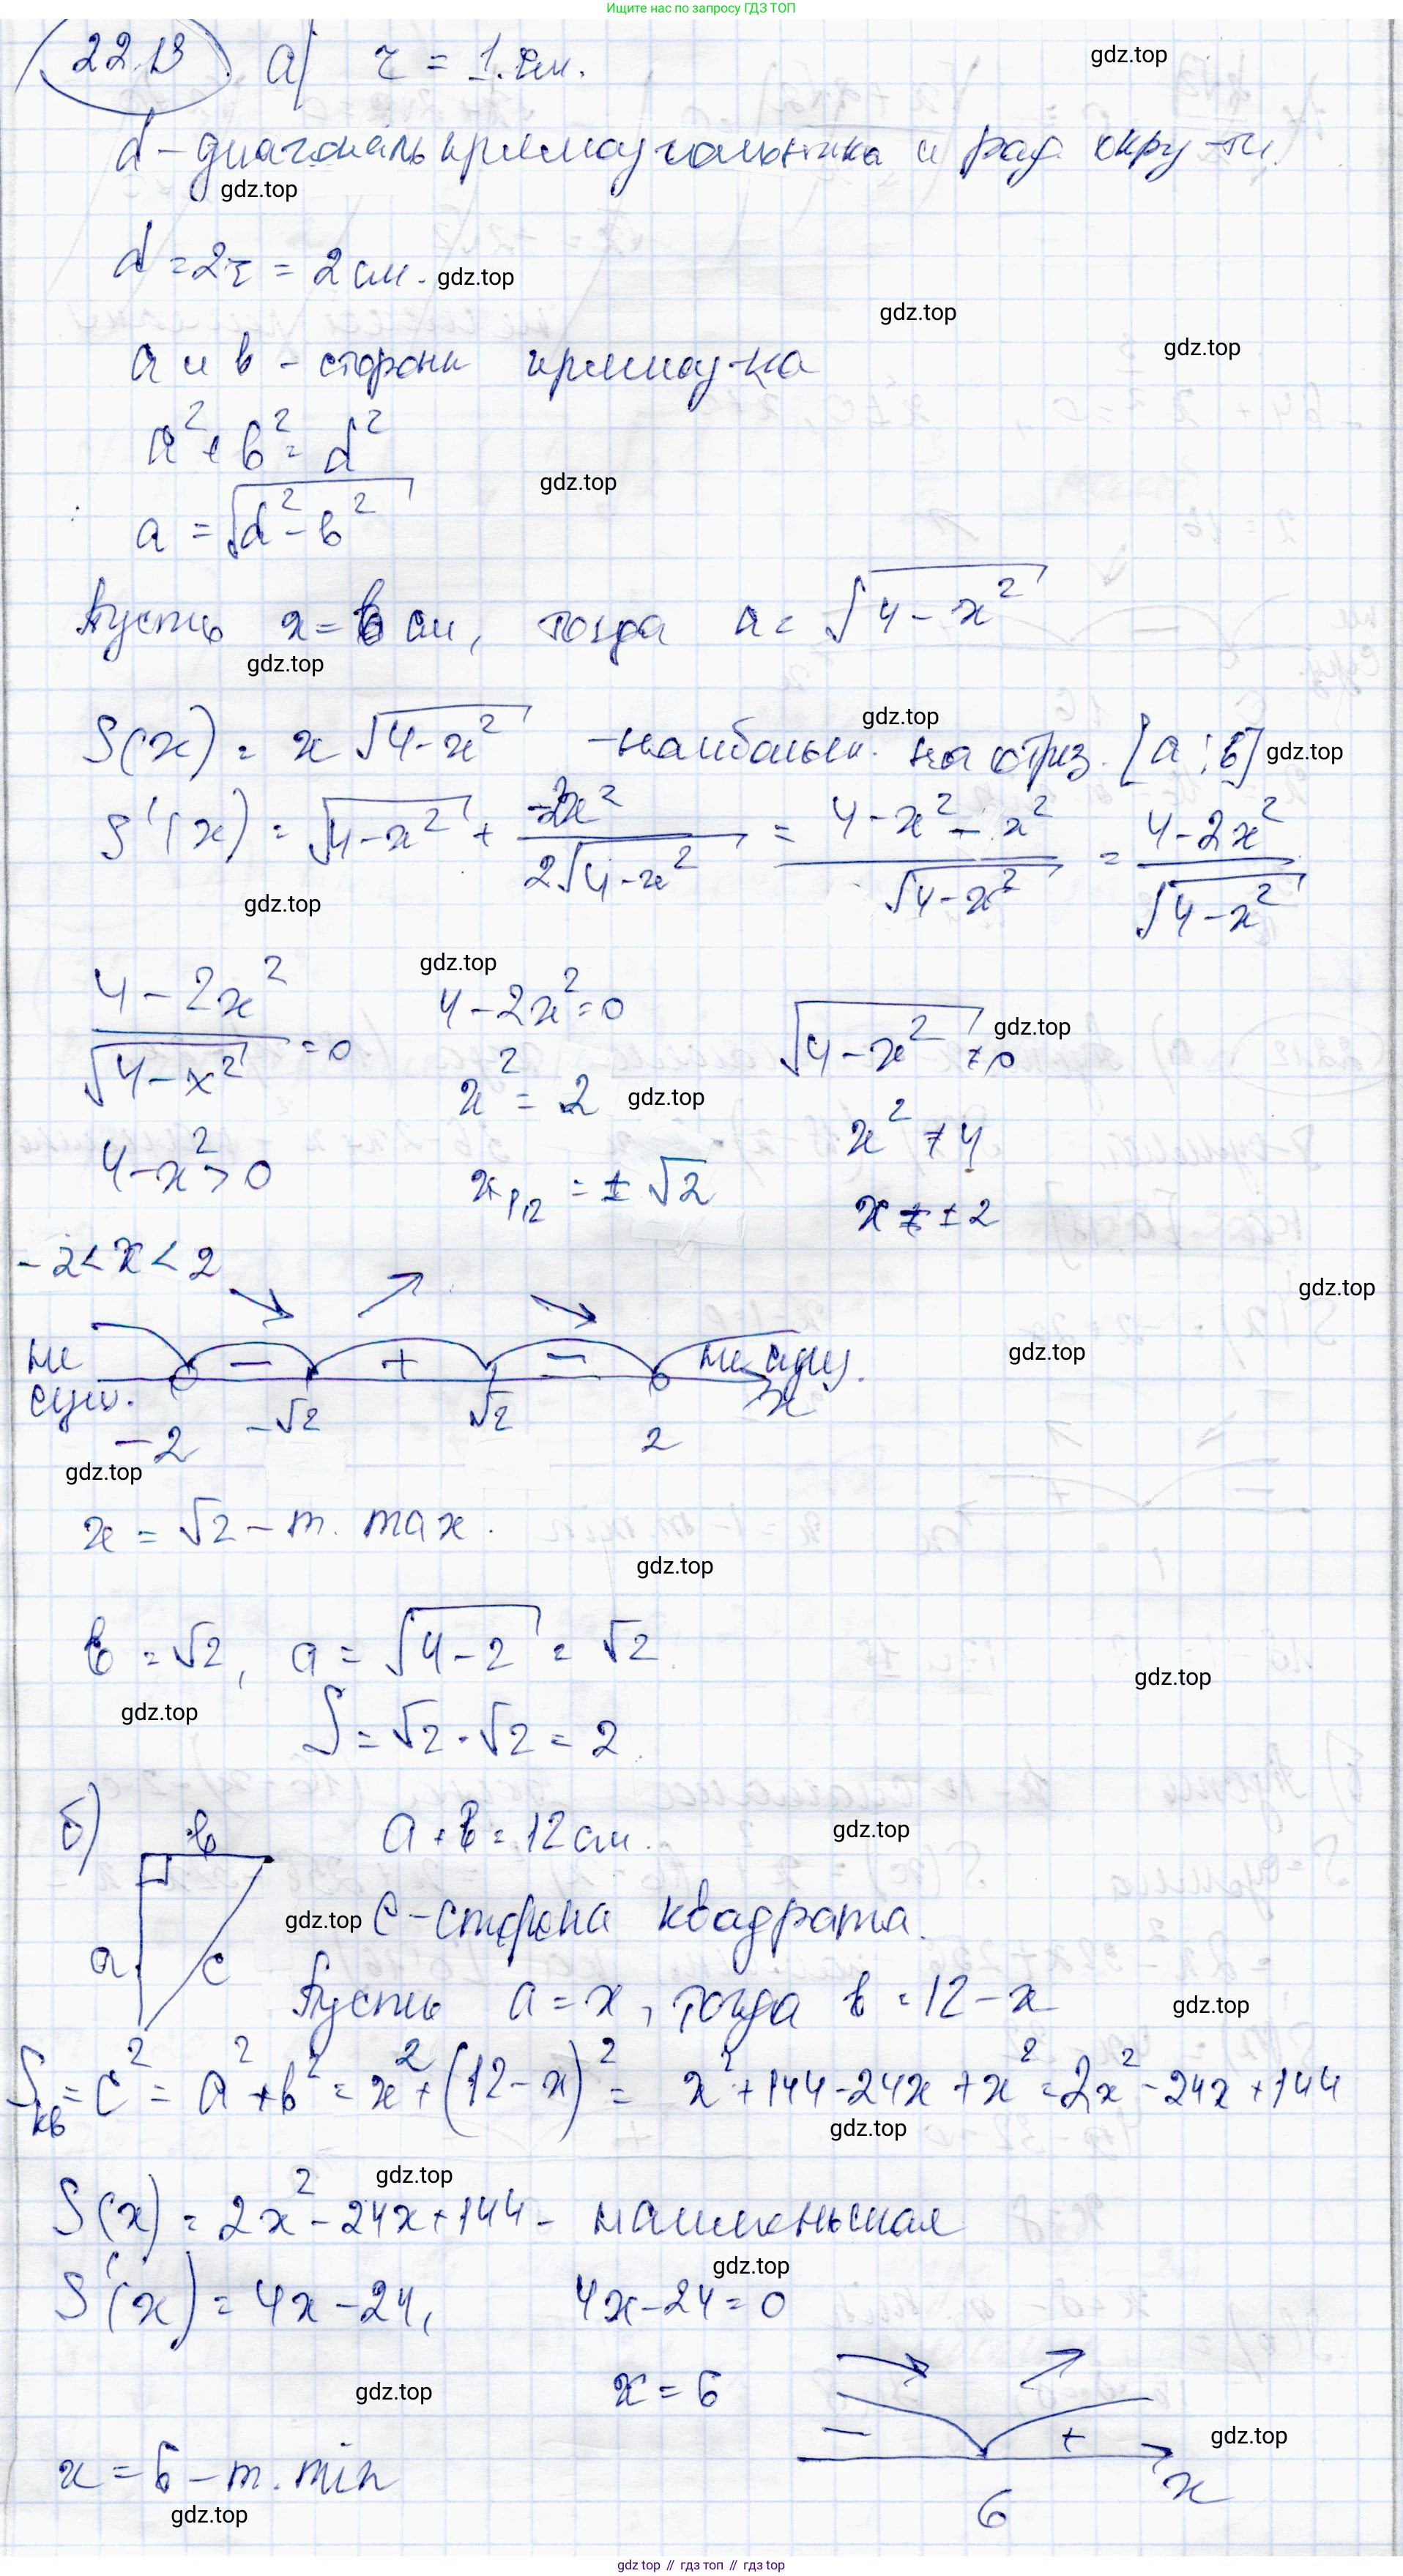 Ищите нас по запросу ГДЗ ТОП
22.13 а) r = 1 см.
gdz.top
d – диагональ прямоугольника и рад. окру-ти.
gdz.top
d = 2r = 2 см.
gdz.top
gdz.top
gdz.top
a и b – стороны прямоу-ка
a² + b² = d²
gdz.top
a = √(d² – b²)
Пусть x = b см, тогда a = √(4 – x²)
gdz.top
gdz.top
S(x) = x √(4 – x²) – наибольш. на отрез. [a; b]
gdz.top
S'(x) = √(4 – x²) + –2x²/(2√(4 – x²)) = (4 – x² – x²)/√(4 – x²) = (4 – 2x²)/√(4 – x²)
gdz.top
gdz.top
(4 – 2x²)/√(4 – x²) = 0 4 – 2x² = 0 √(4 – x²) ≠ 0
gdz.top
x² = 2
gdz.top
4 – x² > 0 x² ≠ 4
x₁,₂ = ± √2 x ≠ ± 2
–2 < x < 2
gdz.top
не сущ. – + – не сущ.
gdz.top
–2 –√2 √2 2 x
gdz.top
x = √2 – т. max.
gdz.top
b = √2, a = √(4 – 2) = √2
gdz.top
gdz.top
S = √2 · √2 = 2
б) b a + b = 12 см.
gdz.top
gdz.top
c – сторона квадрата.
a c
Пусть a = x, тогда b = 12 – x
gdz.top
Sкв = c² = a² + b² = x² + (12 – x)² = x² + 144 – 24x + x² = 2x² – 24x + 144
gdz.top
gdz.top
S(x) = 2x² – 24x + 144 – наименьшая
gdz.top
S'(x) = 4x – 24, 4x – 24 = 0
gdz.top
x = 6
– +
gdz.top
x = 6 – т. min
6 x
gdz.top
gdz top // гдз топ // gdz top